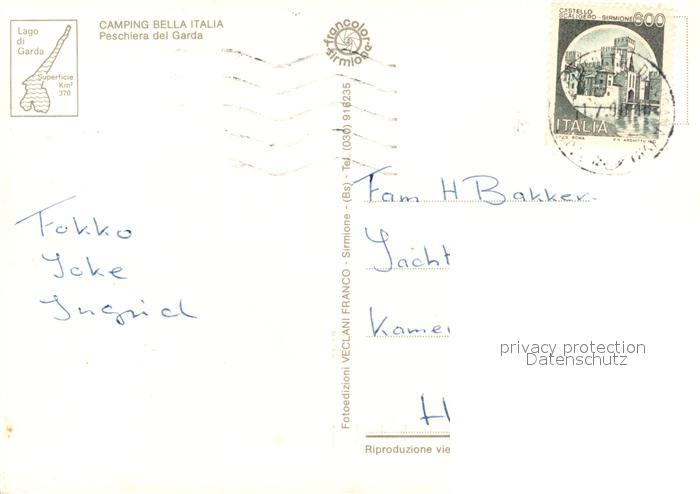 Lago
di
Garda
Superficie
Km²
370
CAMPING BELLA ITALIA
Peschiera del Garda
francolor
sirmione
CASTELLO
SCALIGERO - SIRMIONE 600
ITALIA
Fotoedizioni VECLANI FRANCO - Sirmione - (Bs) - Tel. (030) 916235
Fam H Bakker.
Jacht
Kamer
H
Fokko
Joke
Ingrid
privacy protection
Datenschutz
Riproduzione vie